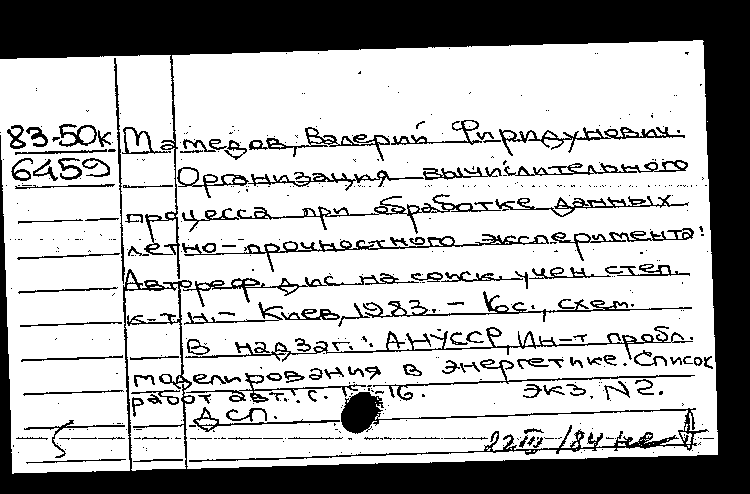 83-50к Мамедов, Валерий Фиридунович.
6459 Организация вычислительного
процесса при обработке данных
летно-прочностного эксперимента:
Автореф. дис. на соиск. учен. степ.
к-т.н. - Киев, 1983. - 16с., схем.
В надзаг.: АН УССР, Ин-т пробл.
моделирования в энергетике. Список
работ авт.: с. 15-16. экз. N2.
ДСП.
22 III /84